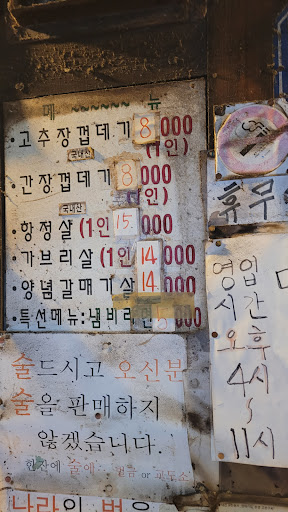 메 뉴
• 고추장껍데기 8,000
(1인)
국내산
• 간장껍데기 8,000
(1인)
국내산
• 항정살 (1인 15,000
• 가브리살 (1인 14,000
• 양념갈매기살 14,000
• 특선메뉴:냄비라면 000
술드시고 오신분
술을 판매하지
않겠습니다.
한잔에 술에 벌금 or 교도소
나라의 법을
휴무
영업
시간
오후
4시
~
11시